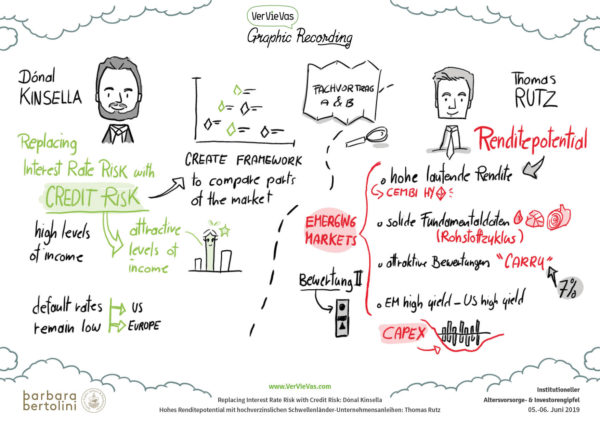 VerVieVas
Graphic Recording
Dónal
KINSELLA
Replacing
Interest Rate Risk with
CREDIT RISK
high levels
of income
attractive
levels of
income
default rates
remain low
US
EUROPE
CREATE FRAMEWORK
to compare parts
of the market
FACHVORTRAG
A & B
Thomas
RUTZ
Renditepotential
EMERGING
MARKETS
hohe laufende Rendite
CEMBI HY
solide Fundamentaldaten
(Rohstoffzyklus)
attraktive Bewertungen "CARRY"
7%
EM high yield – US high yield
CAPEX
Bewertung
barbara
bertolini
www.VerVieVas.com
Replacing Interest Rate Risk with Credit Risk: Dónal Kinsella
Hohes Renditepotential mit hochverzinslichen Schwellenländer-Unternehmensanleihen: Thomas Rutz
Institutioneller
Altersvorsorge- & Investorengipfel
05.-06. Juni 2019